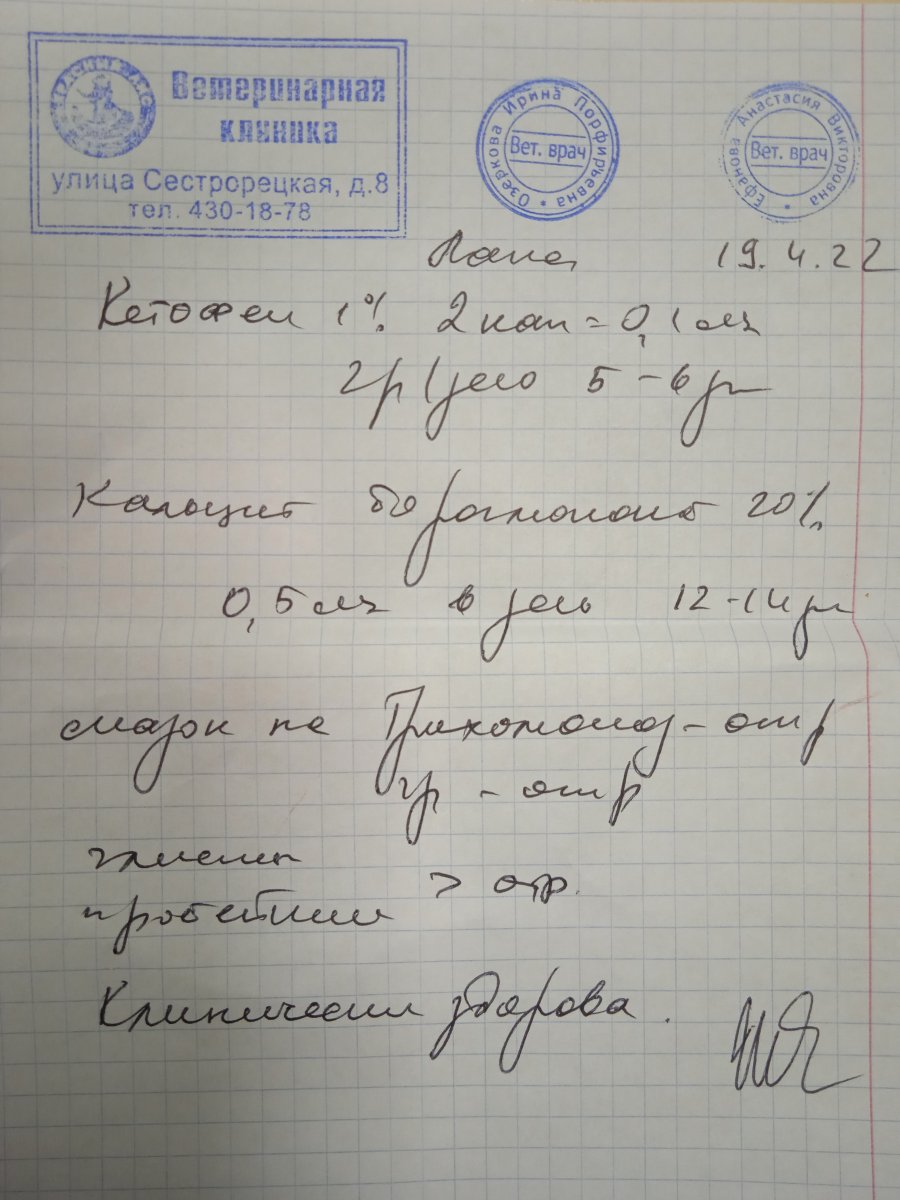 Ветеринарная
клиника
улица Сестрорецкая, д.8
тел. 430-18-78
Озеркова Ирина Порфирьевна *
Вет. врач
Ефанова Анастасия Викторовна *
Вет. врач
19.4.22
Кетофен 1% 2 кап = 0,1 мл
2 р/день 5-6 дн
Кальция борглюконат 20%
0,5 мл в день 12-14 дн
смазок на Трихомоноз - отр
гр - отр
глисты
простейшие > отр.
Клинически здорова.